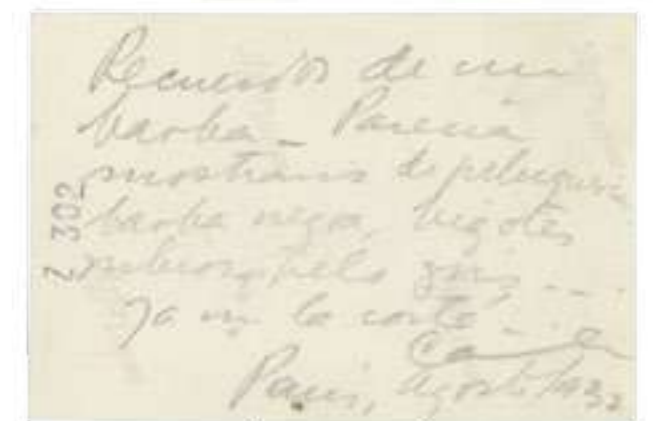 Recuerdos de mi
barba _ Parecía
mostrario de peluquería
barba negra, bigotes
rubios, pelo gris ....
Ya me la corté ...
Paris, Agosto 1932
Z 302